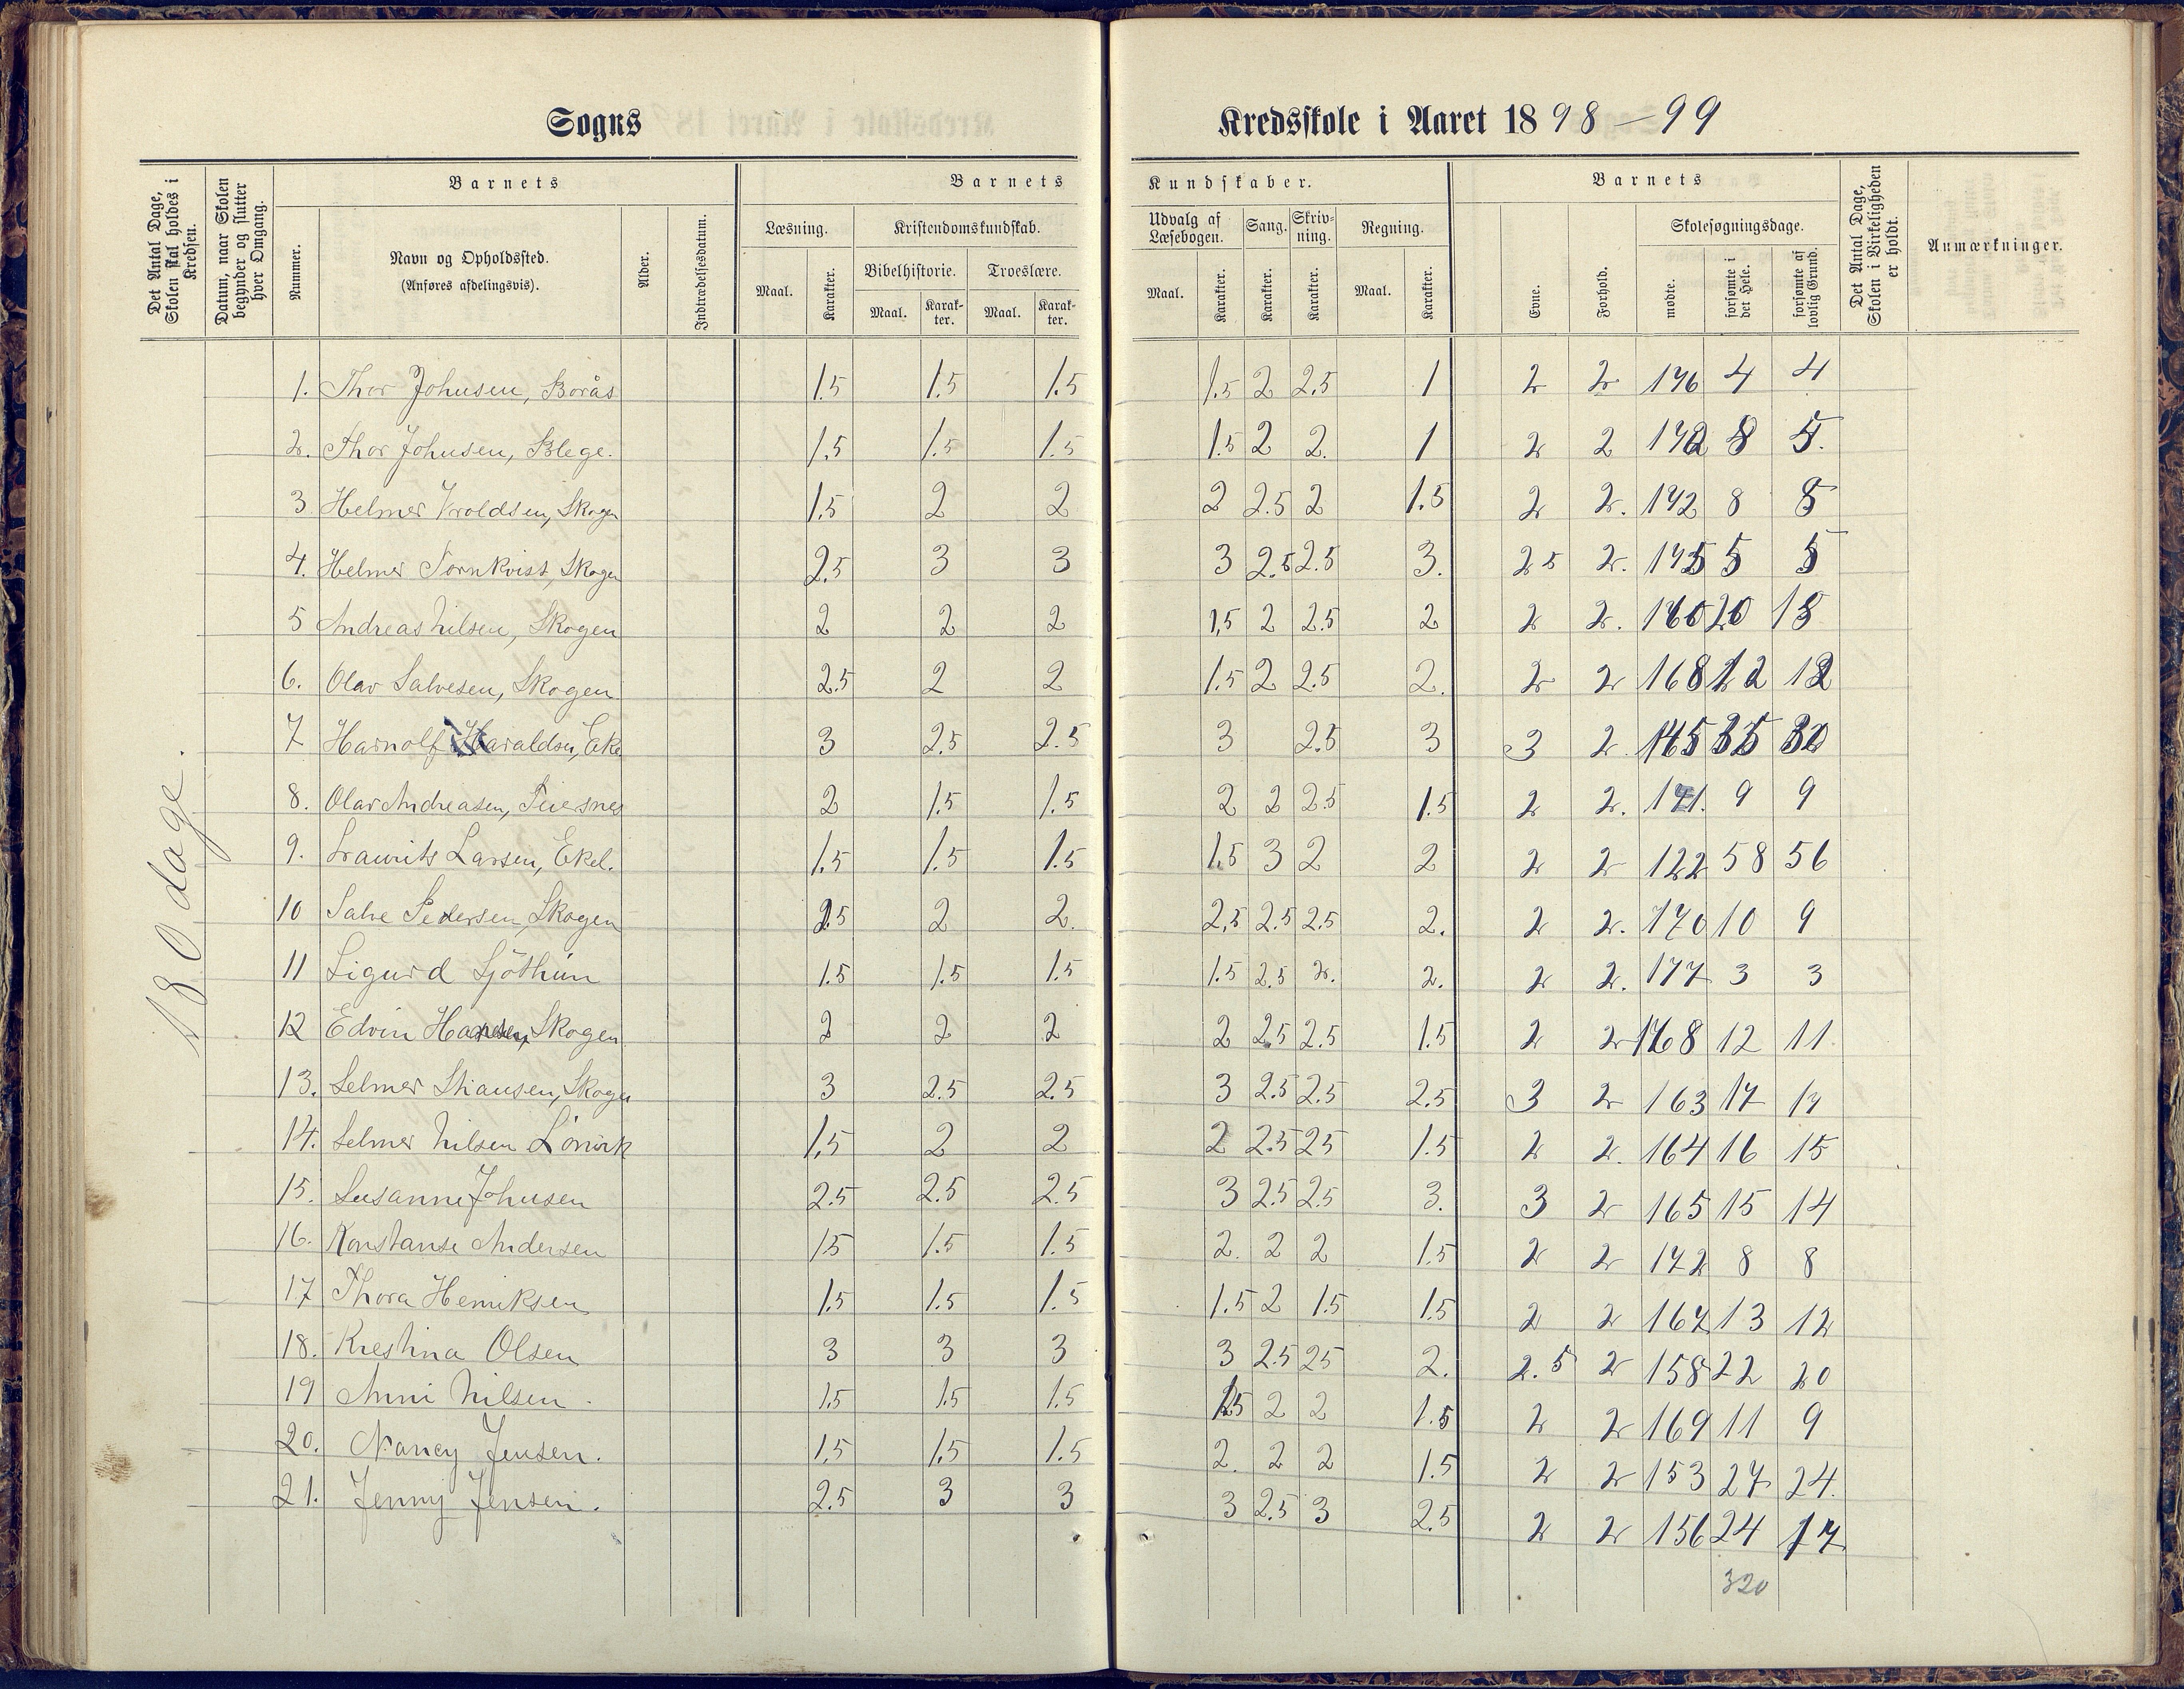 Sogns
Kredsskole i Aaret 1898-99
Det Antal Dage, Skolen skal holdes i Kredsen.
Datum, naar Skolen begynder og slutter hver Omgang.
Barnets
Nummer.
Navn og Opholdssted.
(Anføres afdelingsvis).
Alder.
Indtrædelsesdatum.
Barnets
Kundskaber.
Læsning.
Maal.
Karakter.
Kristendomskundskab.
Bibelhistorie.
Maal.
Karakter.
Troeslære.
Maal.
Karakter.
Udvalg af Læsebogen.
Maal.
Karakter.
Sang.
Karakter.
Skrivning.
Karakter.
Regning.
Maal.
Karakter.
Barnets
Evne.
Forhold.
Skolesøgningsdage.
mødte.
forsømte i det Hele.
forsømte af lovlig Grund.
Det Antal Dage, Skolen i Virkeligheden er holdt.
Anmærkninger.
180 dage.
1. Thor Johnsen, Borås 1.5 1.5 1.5 1.5 2 2.5 1 2 2 176 4 4
2. Thor Johnsen, Blege. 1.5 1.5 1.5 1.5 2 2. 1 2 2 172 8
3 Helmer Vroldsen, Skogen 1.5 2 2 2 2.5 2 1.5 2 2. 172 8 8
4. Helmer Törnkvist, Skogen 2.5 3 3 3 2.5 2.5 3. 2.5 2. 175 5 5
5 Andreas Nilsen, Skogen 2 2 2 1,5 2 2.5 2 2 2. 160 20 18
6. Olav Salvesen, Skogen. 2.5 2 2 1.5 2 2.5 2. 2 2 168 12 12
7 Harnolf Haraldsen, Eke 3 2.5 2.5 3 2.5 3 3 2
8. Olav Andreasen, 2 1.5 1.5 2 2 2.5 1.5 2 2. 171. 9 9
9. Lawrits Larsen, Ekel. 1.5 1.5 1.5 1.5 3 2 2 2 2 122 58 56
10 Salve Pedersen, Skogen 2.5 2 2. 2,5 2.5 2.5 2. 2 2. 170 10 9
11 Sigurd Sjöthun 1.5 1.5 1.5 1.5 2.5 2. 2. 2 2. 177 3 3
12 Edvin Hansen, Skogen 2 2 2 2 2.5 2.5 1.5 2 2 168 12 11
13. Selmer Skogen 3 2.5 2.5 3 2.5 2.5 2.5 3 2 163 17 17
14. Selmer Nilsen 1,5 2 2 2 2.5 25 1.5 2 2. 164 16 15
15. Susanne Johnsen 2.5 2.5 2.5 3 2.5 2.5 3. 3 2 165 15 14
16. Konstanse Andersen 15 1.5 1.5 2. 2 2 1.5 2 2 172 8 8
17 Thora Henriksen 1.5 1.5 1.5 1.5 2 1.5 1.5 2 2 167 13 12
18. Krestina Olsen 3 3 3 3 2.5 25 2. 2.5 2 158 22 20
19 Anni Nilsen. 1.5 1.5 1.5 1.5 2 2 1.5 2 2 169 11 9
20. Nancy Jensen. 1,5 1.5 1.5 2. 2 2 1.5 2 2 153 27 24.
21. Jenny Jensen. 2.5 3 3 3 2.5 3 2.5 2 2 156 24 17
320